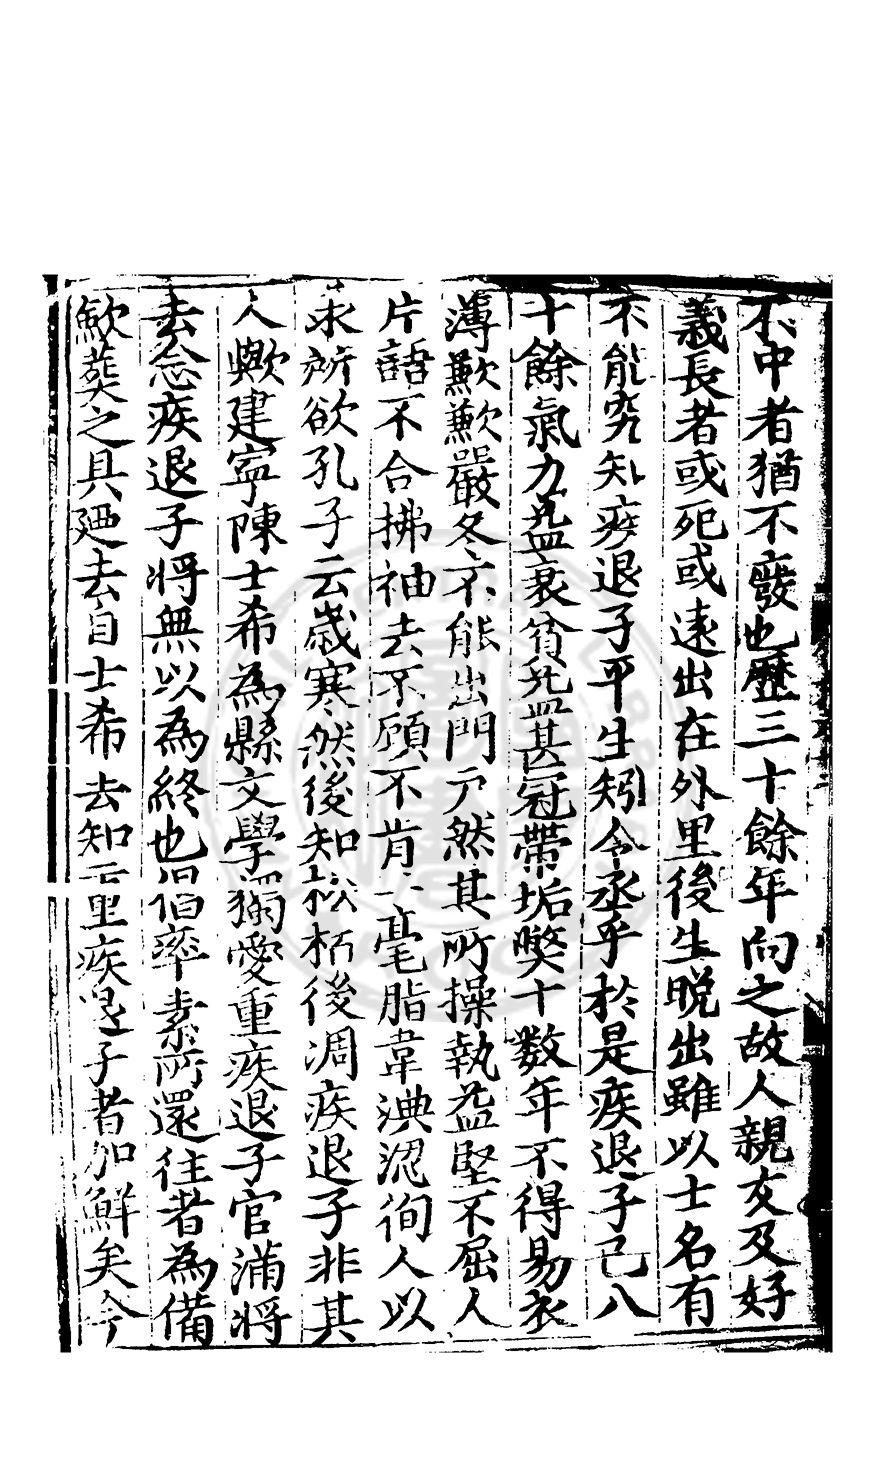 不中者猶不廢也歷三十餘年向之故人親友及好
義長者或死或遠出在外里後生晚出雖以士名有
不能究知疾退子平生矧令丞乎於是疾退子已八
十餘氣力益衰貧益甚冠帶垢獘十數年不得易衣
薄歉歉嚴冬不能出門戶然其所操執益堅不屈人
片語不合拂袖去不顧不肯一毫脂韋淟涊徇人以
求所欲孔子云歲寒然後知松栢後凋疾退子非其
人歟建寧陳士希為縣文學獨愛重疾退子官滿將
去念疾退子將無以為終也倡率素所還往者為備
歛葬之具廼去自士希去知重疾退子者加鮮矣今